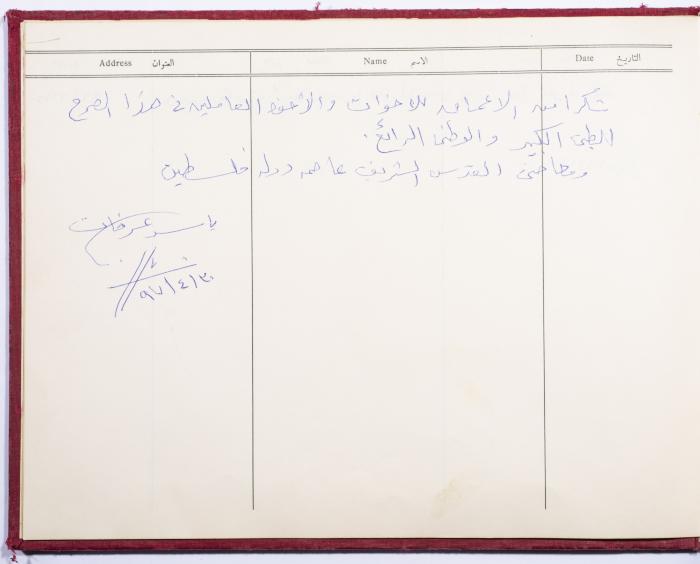 التاريخ Date الاسم Name العنوان Address
شكرا من الاعماق للاخوات والأخوة العاملين في هذا الصرح
الطبي الكبير والوطني الرائع.
القدس الشريف عاصمة دولة فلسطين
ياسر عرفات
٩٧/٤/٣٠